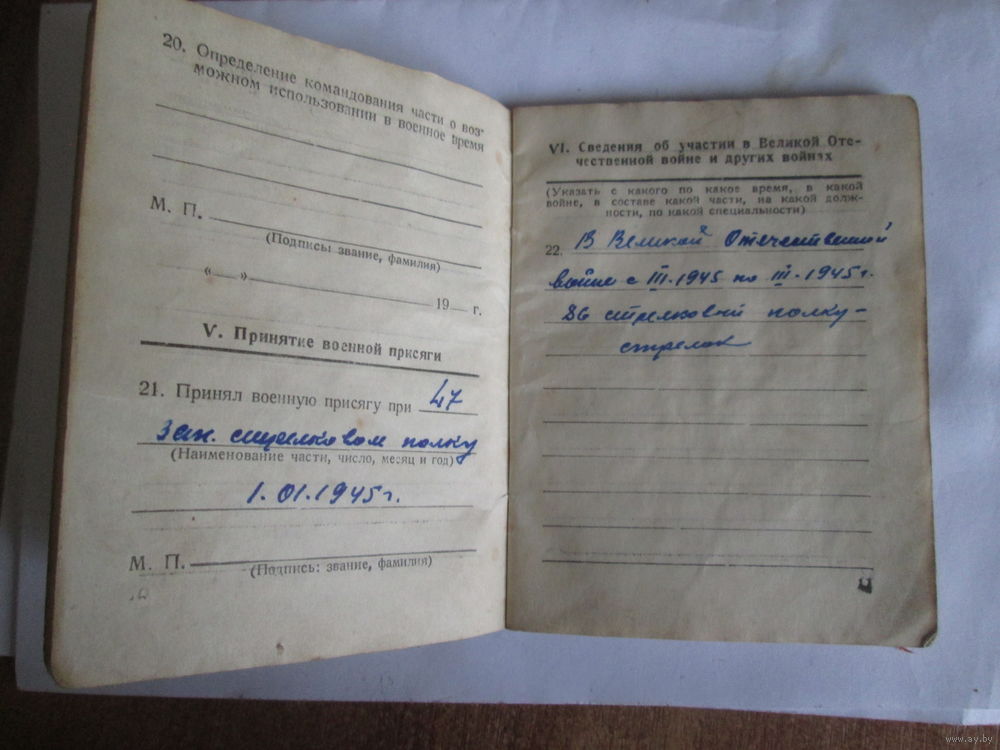 20. Определение командования части о воз-
можном использовании в военное время
М. П.
(Подпись: звание, фамилия)
« » 19 г.
V. Принятие военной присяги
21. Принял военную присягу при 47
зап. стрелковом полку
(Наименование части, число, месяц и год)
1.01.1945г.
М. П.
(Подпись: звание, фамилия)
VI. Сведения об участии в Великой Оте-
чественной войне и других войнах
(Указать с какого по какое время, в какой
войне, в составе какой части, на какой долж-
ности, по какой специальности)
22. В Великой Отечественной
войне с III.1945 по III.1945г.
86 стрелковый полку-
стрелок
www.ay.by